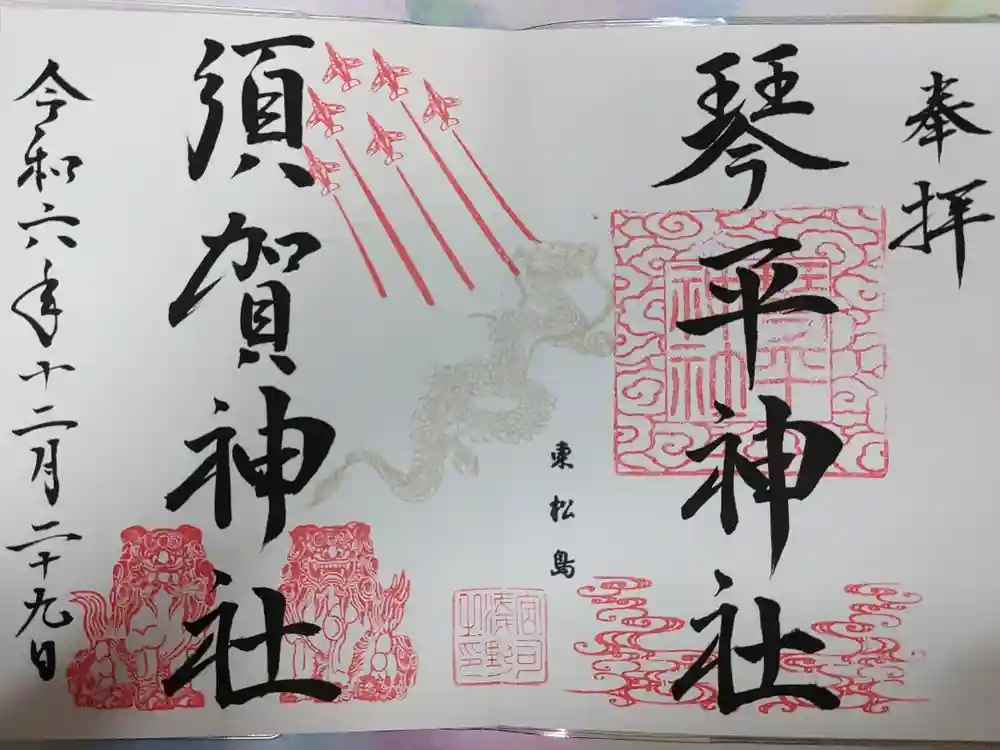 奉拝
琴平神社
琴平神社
東松島
須賀神社
令和六年十二月二十九日